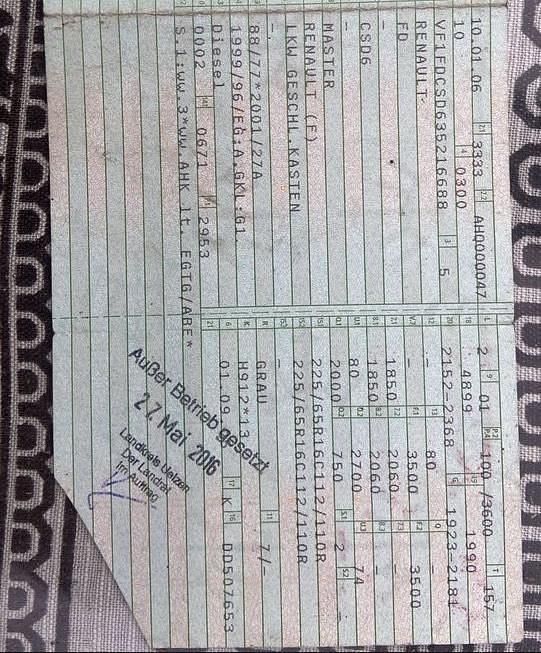 10.01.06 3333 AHQ000047
10 0300
VF1FDCSD635216688 5
RENAULT
FD
-
CSD6
-
MASTER
RENAULT (F)
LKW GESCHL.KASTEN
-
88/77*2001/27A
1999/96/EG;A,GKL:G1
Diesel
0002 0671 2953
S.1:ww.3*ww.AHK lt. EGTG/ABE*
2 01 100 /3600 157
4899 1990
2152-2368 1923-2181
- 80 -
- 3500 3500
1850 2060 -
1850 2060 -
80 2700 74
2000 750 2 -
225/65R16C112/110R
225/65R16C112/110R
-
GRAU 7/-
H912*13
01.09 K DD507653
Außer Betrieb gesetzt
27. Mai 2016
Landkreis Uelzen
Der Landrat
Im Auftrag